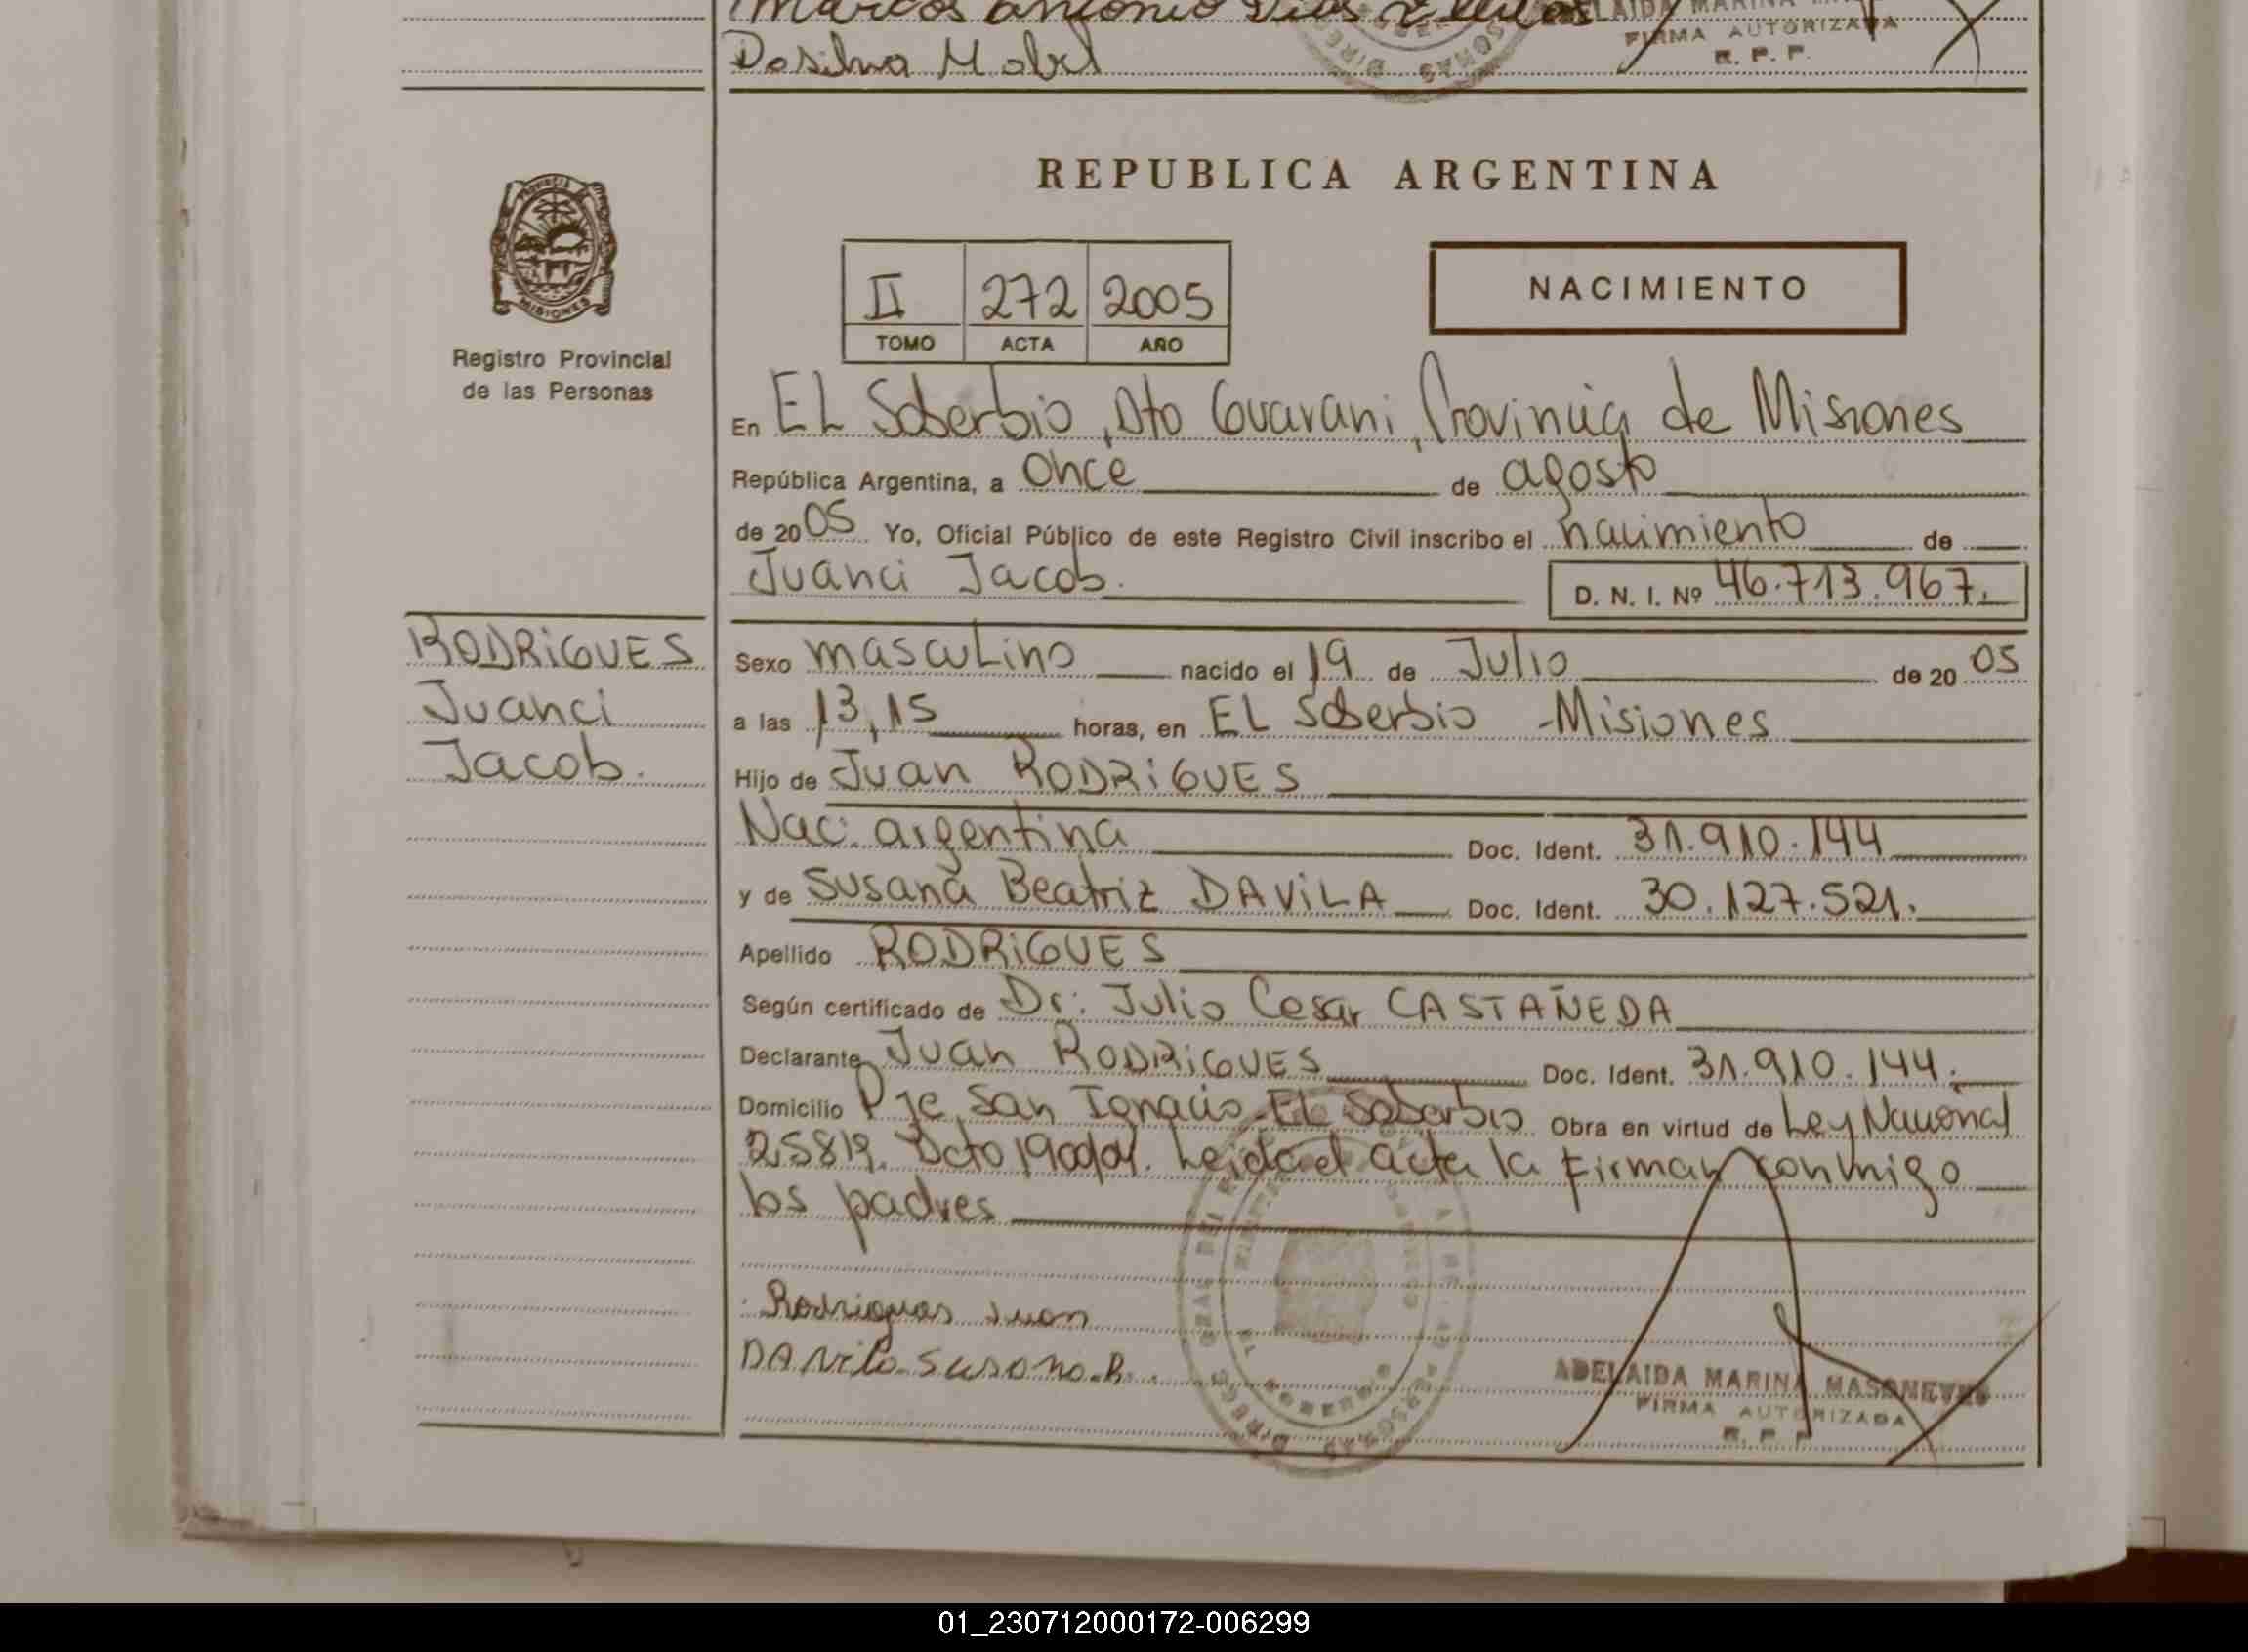 Marcos Antonio
Dasilva Mabel
FIRMA AUTORIZADA
R. P. P.
REPUBLICA ARGENTINA
PROVINCIA
MISIONES
Registro Provincial
de las Personas
II 272 2005
TOMO ACTA AÑO
NACIMIENTO
En EL Soberbio, Dto Guarani, Provincia de Misiones
República Argentina, a Once de agosto
de 2005 Yo, Oficial Público de este Registro Civil inscribo el nacimiento de
Juanci Jacob. D. N. I. Nº 46.713.967.
RODRIGUES
Juanci
Jacob.
Sexo masculino nacido el 19 de Julio de 2005
a las 13,15 horas, en EL Soberbio - Misiones
Hijo de Juan RODRIGUES
Nac: argentina Doc. Ident. 31.910.144
y de Susana Beatriz DAVILA Doc. Ident. 30.127.521.
Apellido RODRIGUES
Según certificado de Dr: Julio Cesar CASTAÑEDA
Declarante Juan RODRIGUES Doc. Ident. 31.910.144.
Domicilio Pje San Ignacio - EL Soberbio Obra en virtud de Ley Nacional
25819. Dcto 1900/04. Leida el acta la firman conmigo
los padres
Rodrigues Juan
DAVila Susana B.
ADELAIDA MARINA
FIRMA AUTORIZADA
R. P. P.
01_230712000172-006299